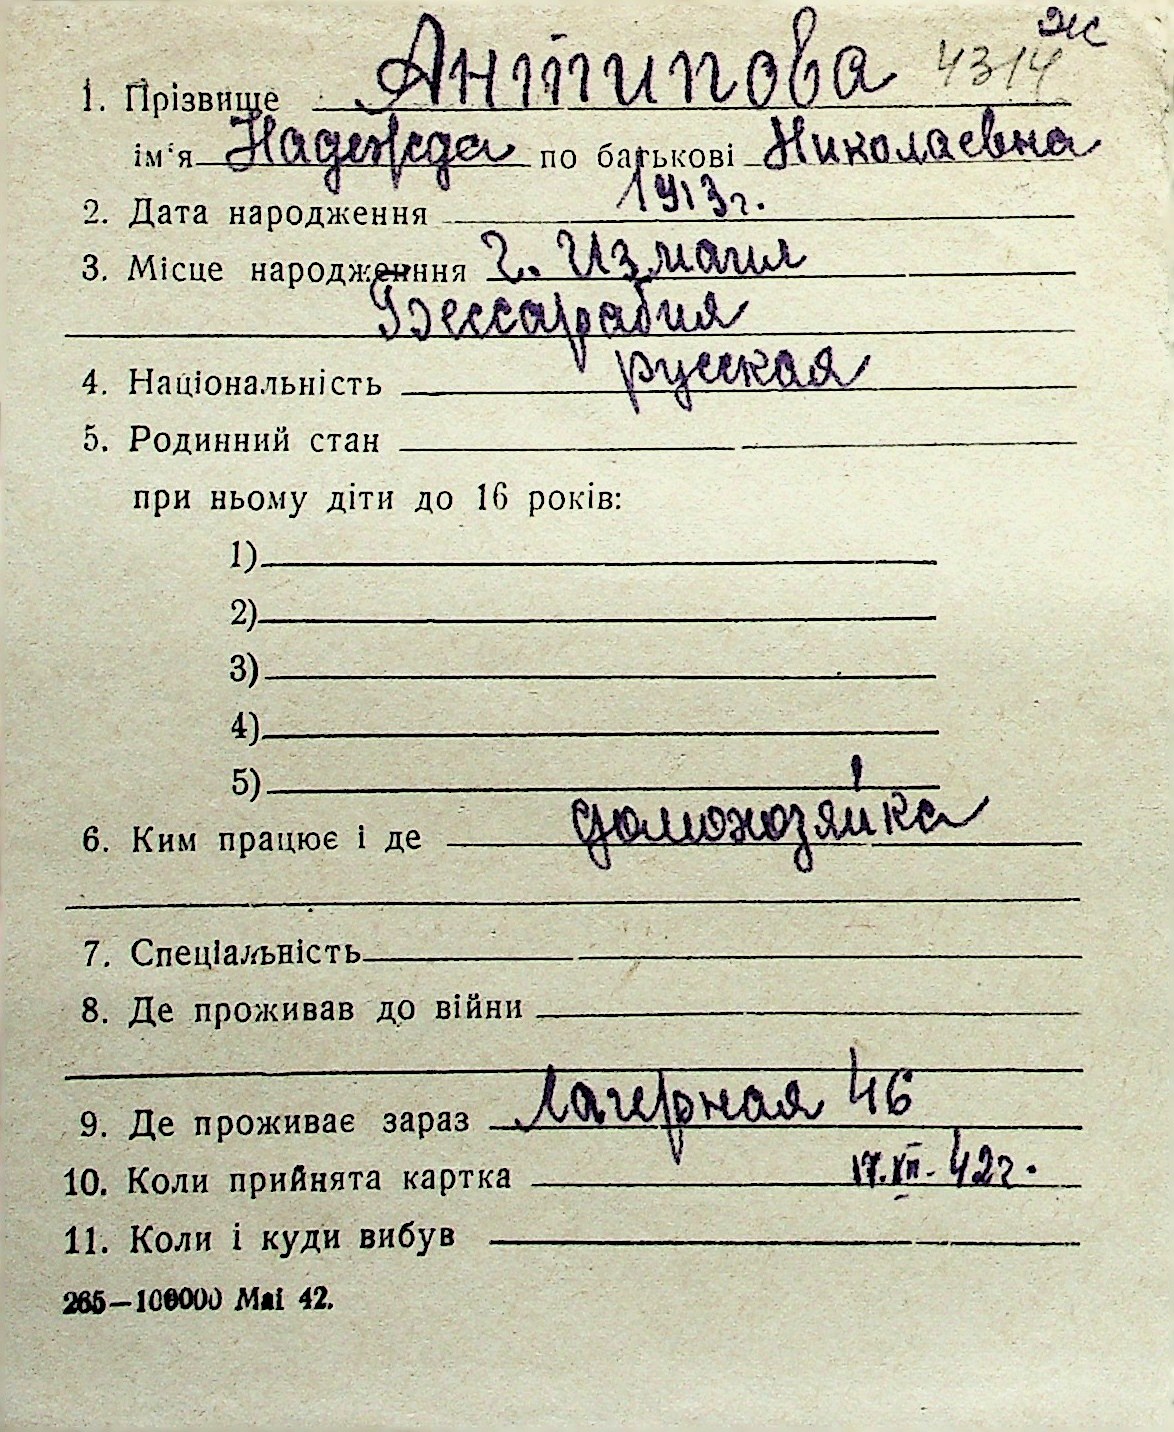 ж
1. Прізвище Антипова 4314
ім'я Надежда по батькові Николаевна
2. Дата народження 1913г.
3. Місце народженння г. Измаил
Бессарабия
4. Національність русская
5. Родинний стан
при ньому діти до 16 років:
1)
2)
3)
4)
5)
6. Ким працює і де домохозяйка
7. Спеціальність
8. Де проживав до війни
9. Де проживає зараз Лагерная 46
10. Коли прийнята картка 17.VII. 42г.
11. Коли і куди вибув
265—100000 Mai 42.